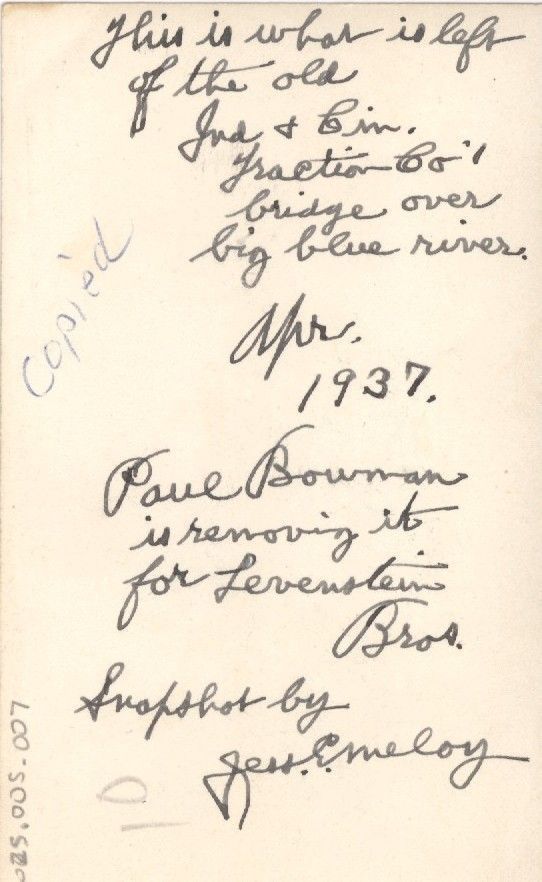 This is what is left
of the old
Ind & Cin.
Traction Co'
bridge over
big blue river.
Copied
Apr.
1937.
Paul Bowman
is removig it
for Levenstein
Bros.
Snapshot by
Jess. E. Meloy
10
025.005.007